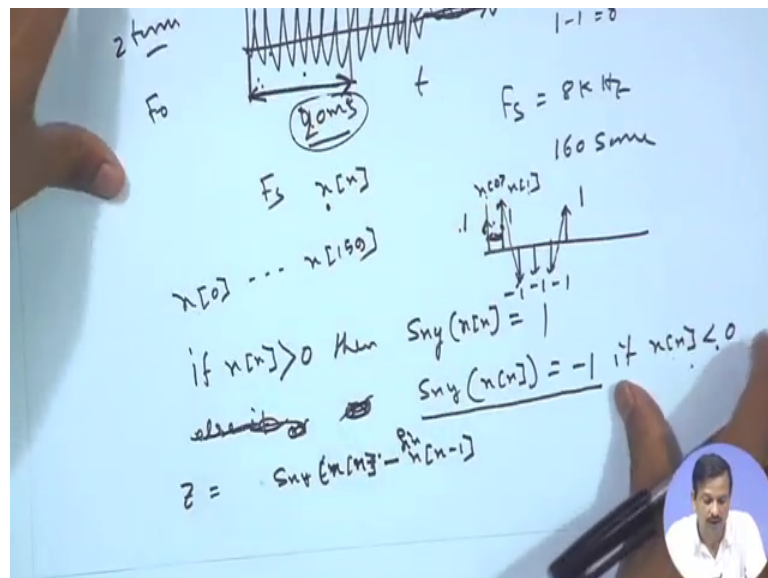 2 term
1-1=0
F0
t
20ms
Fs = 8K Hz
160 Same
Fs x[n]
x[0] x[1]
.1 1 1
x[0] ... x[159]
-1 -1 -1
if x[n]>0 then Sny(x[n] = 1
Sny(x[n]) = -1 if x[n] < 0
z = Sny [x[n] - x[n-1]